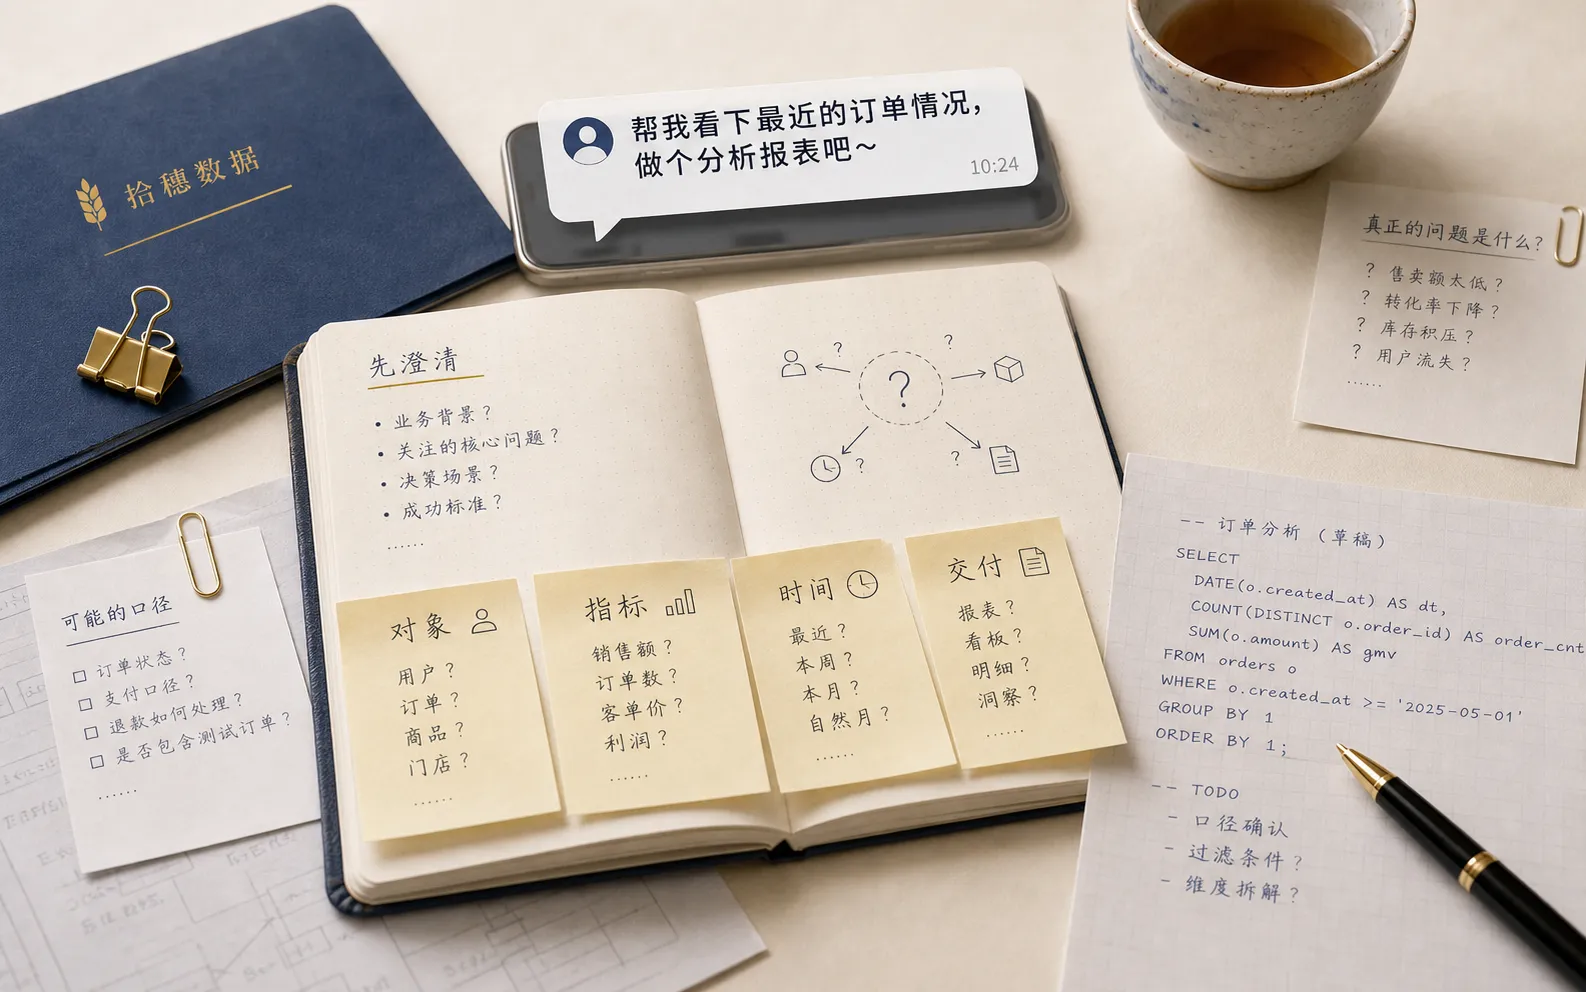 拾穗数据
帮我看下最近的订单情况，
做个分析报表吧～
10:24
真正的问题是什么？
？ 售卖额太低？
？ 转化率下降？
？ 库存积压？
？ 用户流失？
......
先澄清
• 业务背景？
• 关注的核心问题？
• 决策场景？
• 成功标准？
......
?
?
?
?
?
可能的口径
□ 订单状态？
□ 支付口径？
□ 退款如何处理？
□ 是否包含测试订单？
......
对象
用户？
订单？
商品？
门店？
......
指标
销售额？
订单数？
客单价？
利润？
......
时间
最近？
本周？
本月？
自然月？
......
交付
报表？
看板？
明细？
洞察？
......
-- 订单分析（草稿）
SELECT
DATE(o.created_at) AS dt,
COUNT(DISTINCT o.order_id) AS order_cnt
SUM(o.amount) AS gmv
FROM orders o
WHERE o.created_at >= '2025-05-01'
GROUP BY 1
ORDER BY 1;
-- TODO
- 口径确认
- 过滤条件？
- 维度拆解？